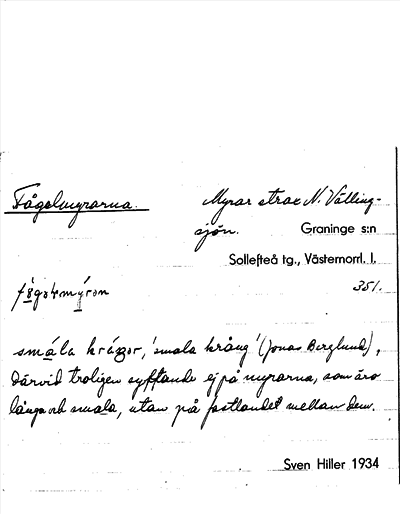 Fågelmyrarna.
Myrar strax N. Välling-
sjön. Graninge s:n
Sollefteå tg., Västernorrl. l.
351.
småla kråŋor, 'smala krång' (Jonas Berglund),
därvid troligen syftande ej på myrarna, som äro
långa och smala, utan på fastlandet mellan dem.
Sven Hiller 1934